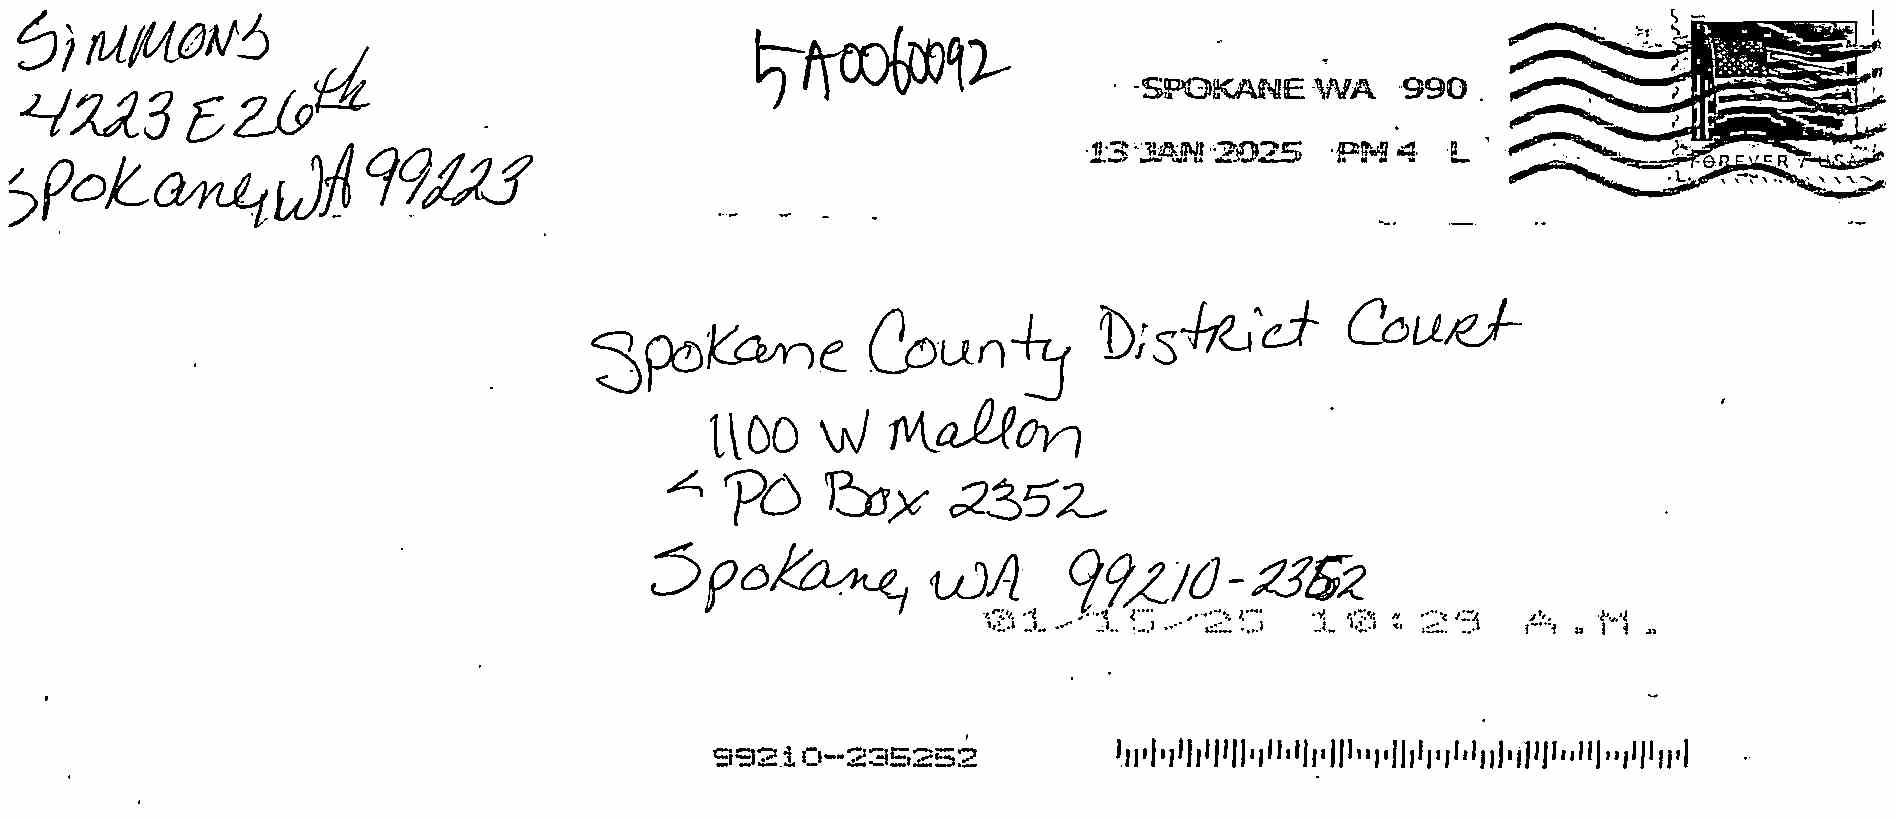 SIMMONS
4223 E 26th
Spokane, WA 99223
5A0060092
SPOKANE WA 990
13 JAN 2025 PM 4 L
FOREVER / USA
Spokane County District Court
1100 W Mallon
PO Box 2352
Spokane, WA 99210-2352
01/15/25 10:29 A.M.
99210-235252